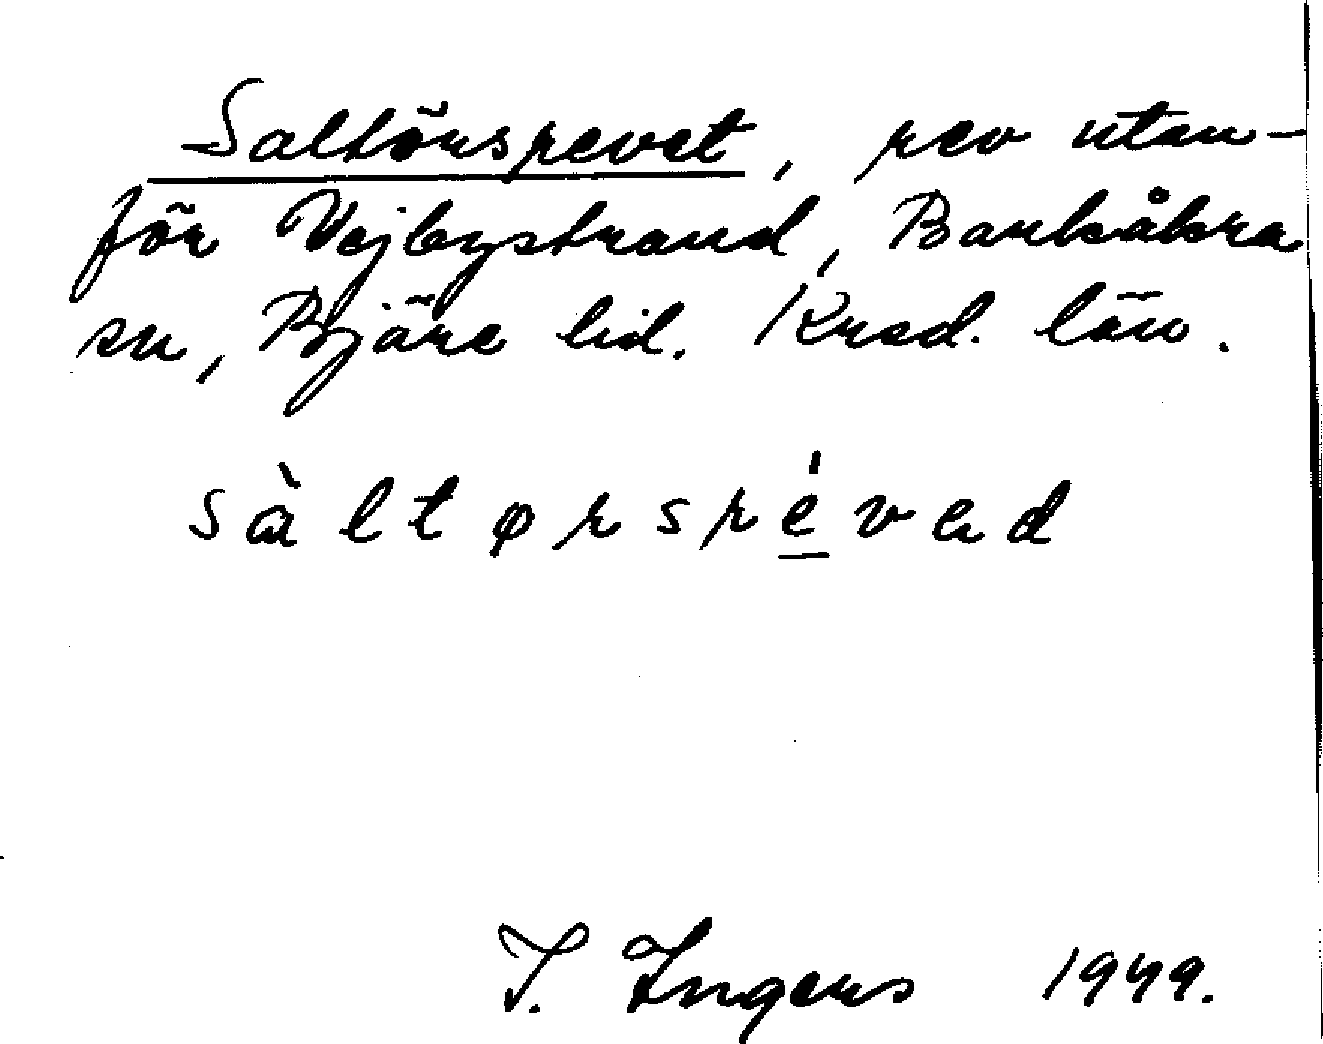 Saltörsrevet, rev utan-
för Vejbystrand, Barkåkra
sn, Bjäre hd. Krsd. län.
sàltørsrévad
I. Ingers 1949.